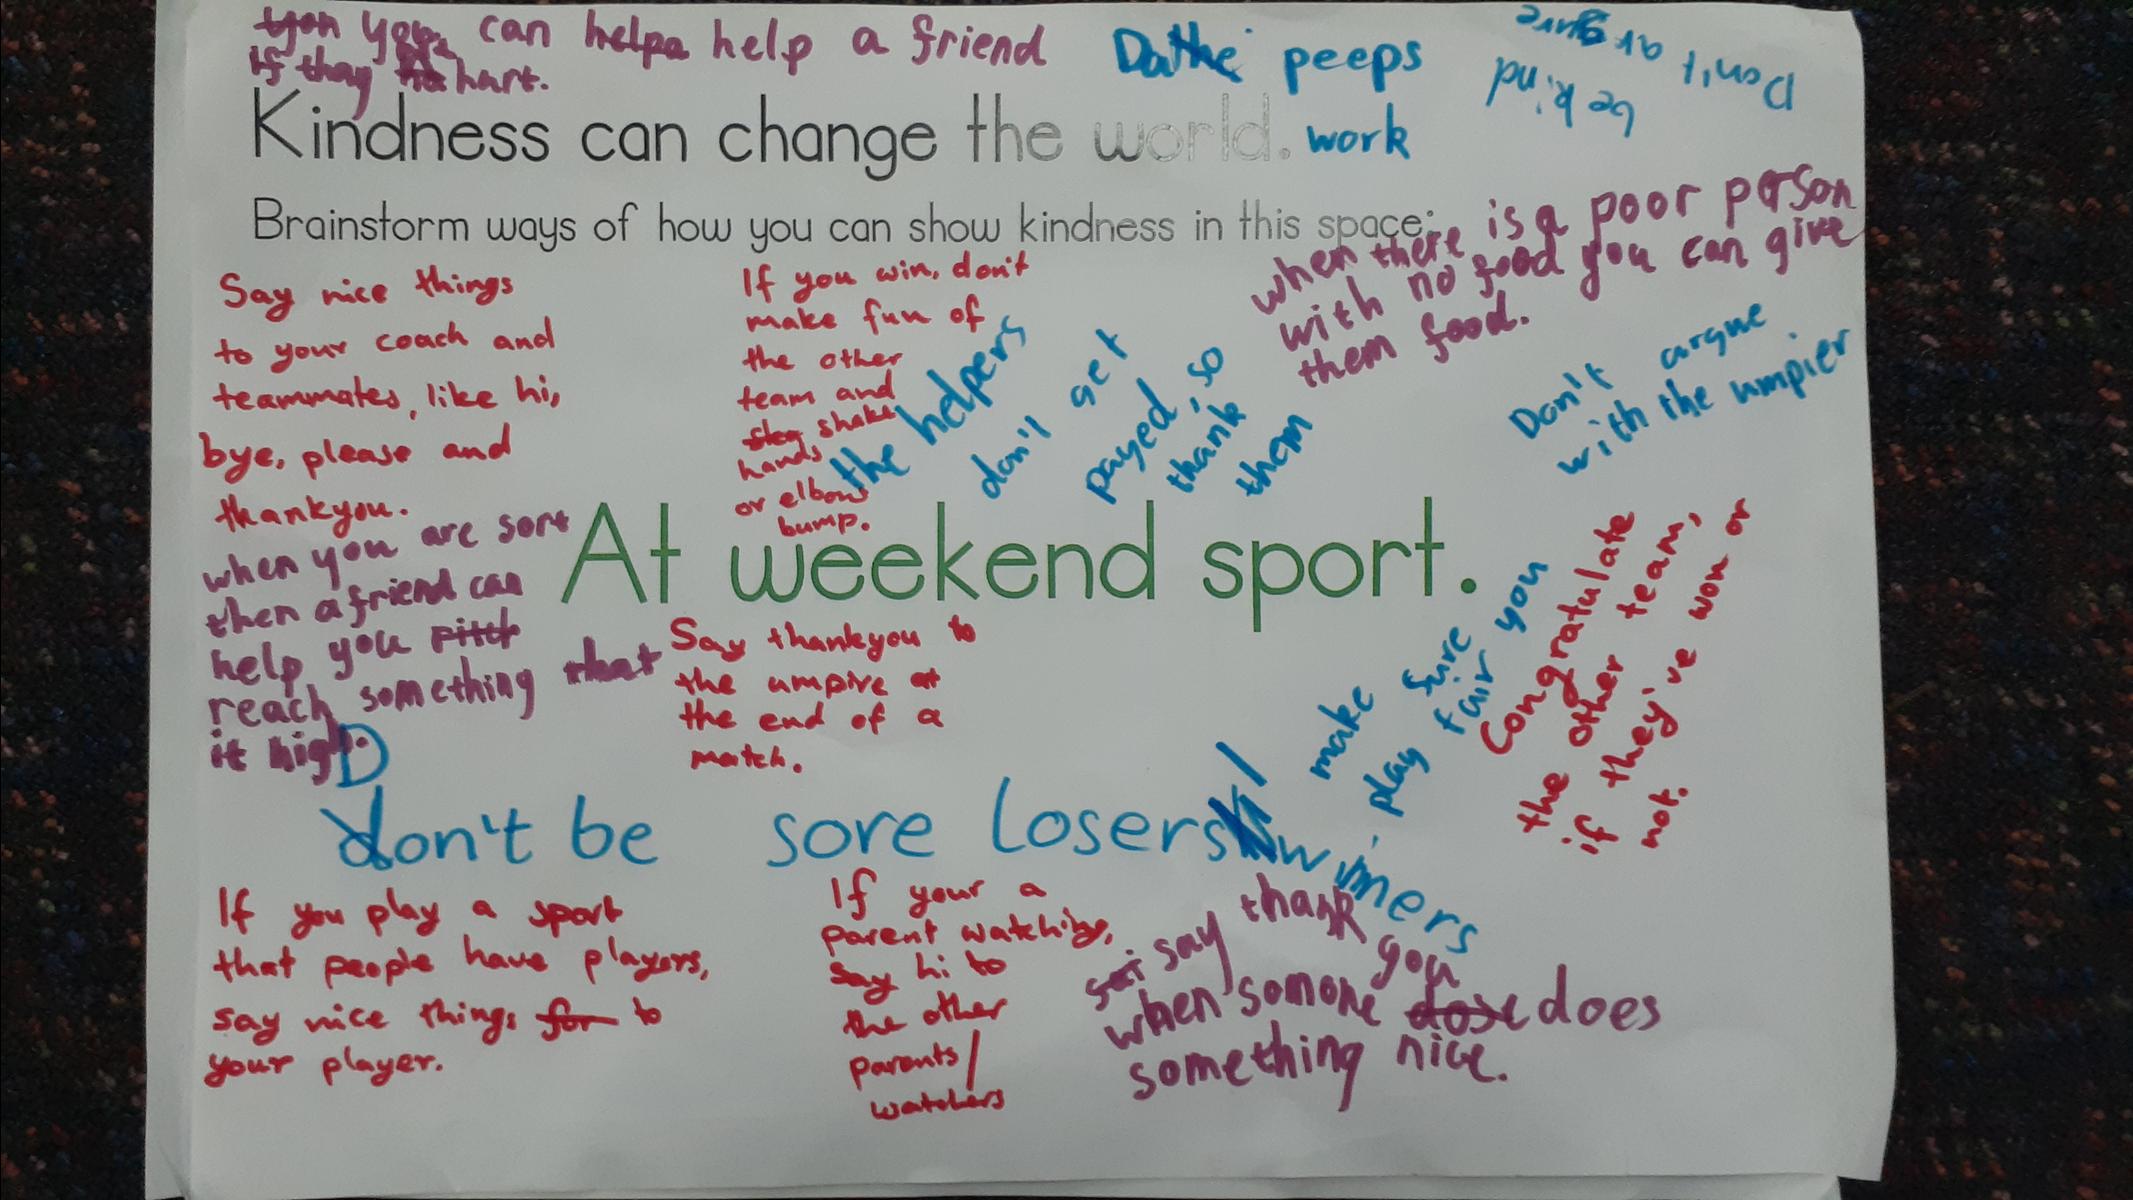 you can help a friend
if thay hurt.
peeps
work
Don't argure
be kind
Kindness can change the world.
Brainstorm ways of how you can show kindness in this space:
when there is a poor person
with no food you can give
them food.
Say nice things
to your coach and
teammates, like hi,
bye, please and
thankyou.
If you win, don't
make fun of
the other
team and
shake
hands
or elbow
bump.
the helpers
don't get
payed, so
thank
them
Don't argue
with the umpier
when you are sort
then a friend can
help you
reach something
it high.
At weekend sport.
Say thankyou to
the umpire at
the end of a
match.
make sure
play fair you
Congratulate
the other team,
if they've won or
not.
Don't be sore losers/winners
If you play a sport
that people have players,
say nice things to
your player.
If your a
parent watching,
say hi to
the other
parents/
watchers
say thank you
when somone does
something nice.